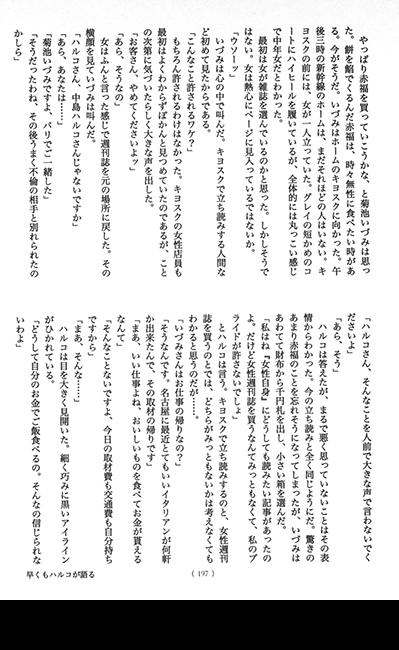 やっぱり赤福を買っていこうかな、と菊池いづみは思っ
た。餅を餡でくるんだ赤福は、時々無性に食べたい時があ
る。今がそうだ。いづみはホームのキヨスクに向かった。午
後三時の新幹線のホームは、まだそれほどの人はいない。キ
ヨスクの前には、女が一人立っていた。グレイの短かめのコ
ートにハイヒールを履いているが、全体的には丸っこい感じ
で中年女だとわかった。
最初は女が雑誌を選んでいるのかと思った。しかしそうで
はない。女は熱心にページに見入っているではないか。
「ウソーッ」
いづみは心の中で叫んだ。キヨスクで立ち読みする人間な
ど初めて見たからである。
「こんなこと許されるワケ？」
もちろん許されるわけはなかった。キヨスクの女性店員も
最初はよくわからずぽかんと見つめていたのであるが、こと
の次第に気づいたらしく大きな声を出した。
「お客さん、やめてくださいよッ」
「あら、そうなの」
女はふんと言った感じで週刊誌を元の場所に戻した。その
横顔を見ていづみは叫んだ。
「ハルコさん、中島ハルコさんじゃないですか」
「あら、あなたは……」
「菊池いづみですよ、パリでご一緒した」
「そうだったわね、その後うまく不倫の相手と別れられたの
かしら」
「ハルコさん、そんなことを人前で大きな声で言わないでく
ださいよ」
「あら、そう」
ハルコは答えたが、まるで悪く思っていないことはその表
情からわかった。今の立ち読みと全く同じようにだ。驚きの
あまり赤福のことを忘れそうになってしまったが、いづみは
あわてて財布から千円札を出し、小さい箱を選んだ。
「私はね『女性自身』にどうしても読みたい記事があったの
よ。だけど女性週刊誌を買うなんてみっともなくて、私のプ
ライドが許さないでしょ」
とハルコは言う。キヨスクで立ち読みするのと、女性週刊
誌を買うのとでは、どちらがみっともないかは考えなくても
わかると思うのだが……。
「いづみさんはお仕事の帰りなの？」
「そうなんです。名古屋に最近とてもいいイタリアンが何軒
か出来たんで、その取材の帰りです」
「まあ、いい仕事よね。おいしいものを食べてお金が貰える
なんて」
「そんなことないですよ、今日の取材費も交通費も自分持ち
ですから」
「まあ、そんな……」
ハルコは目を大きく見開いた。細く巧みに黒いアイライン
がひかれている。
「どうして自分のお金でご飯食べるの。そんなの信じられな
いわよ」
（197）
早くもハルコが語る